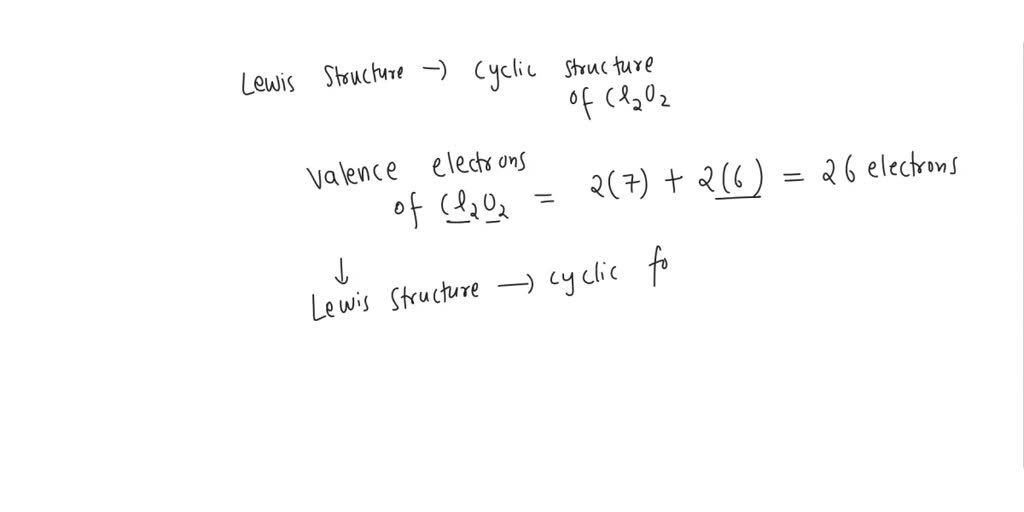 Lewis Structure → Cyclic structure
of Cl₂O₂
Valence electrons
of Cl₂O₂ = 2(7) + 2(6) = 26 electrons
↓
Lewis Structure → cyclic fo